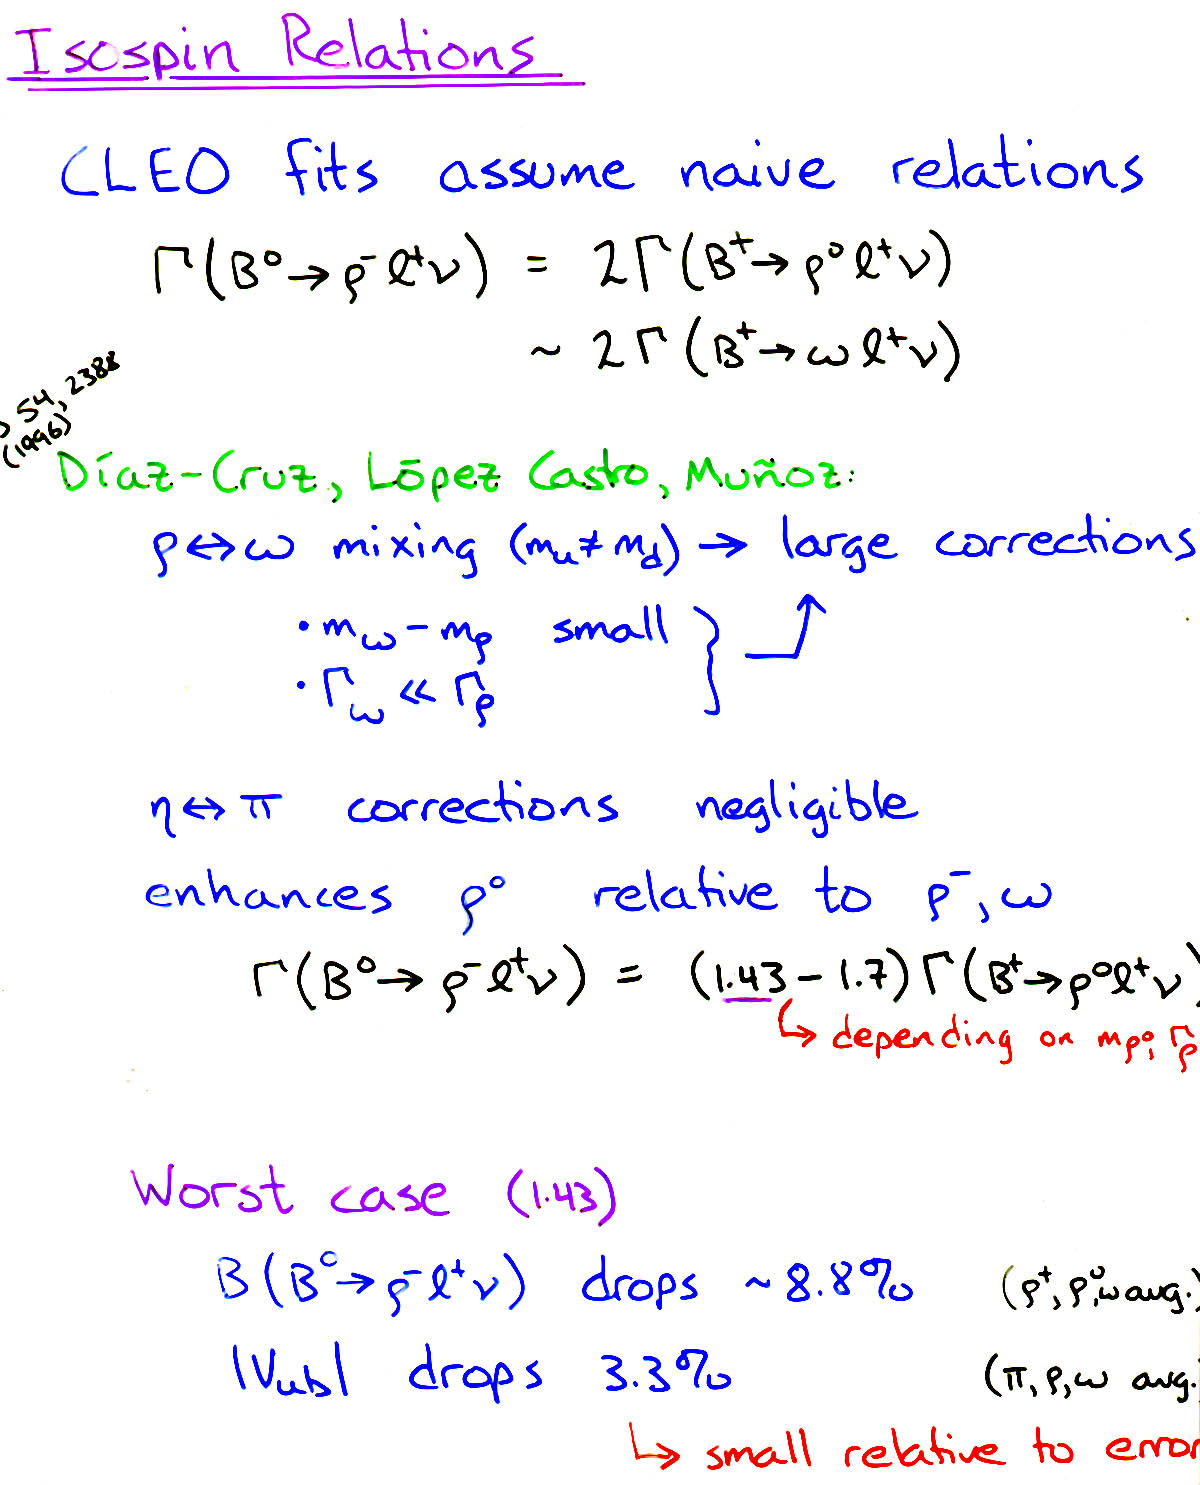 Isospin Relations
CLEO fits assume naive relations
Γ(B⁰→ρ⁻ℓ⁺ν) = 2Γ(B⁺→ρ⁰ℓ⁺ν)
~ 2Γ(B⁺→ωℓ⁺ν)
54, 2388
(1996)
Díaz-Cruz, López Casto, Muñoz:
ρ↔ω mixing (mᵤ≠m_d) → large corrections
• m_ω - m_ρ small
• Γ_ω << Γ_ρ
η↔π corrections negligible
enhances ρ⁰ relative to ρ⁻, ω
Γ(B⁰→ρ⁻ℓ⁺ν) = (1.43 - 1.7)Γ(B⁺→ρ⁰ℓ⁺ν)
↳ depending on m_ρ⁰, Γ_ρ
Worst case (1.43)
B(B⁰→ρ⁻ℓ⁺ν) drops ~8.8% (ρ⁺, ρ⁰, ω avg.)
|V_ub| drops 3.3% (π, ρ, ω avg.
↳ small relative to error